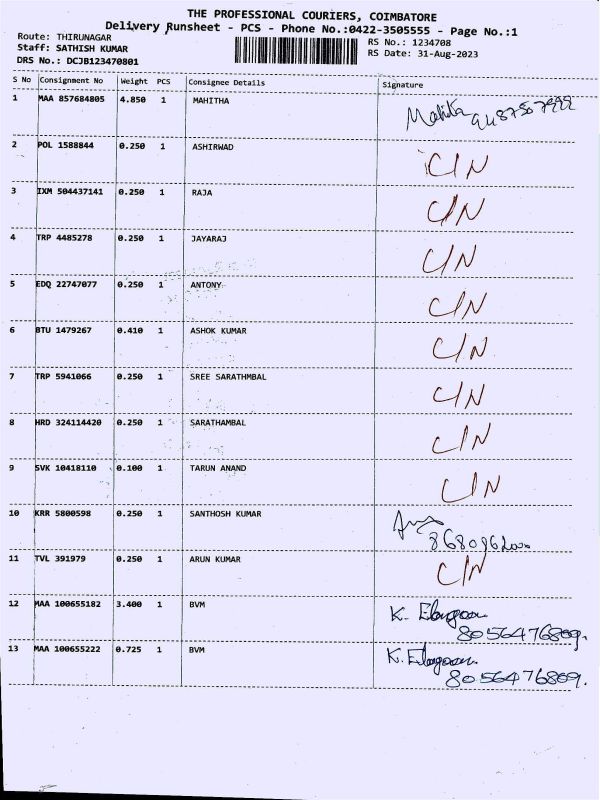 THE PROFESSIONAL COURIERS, COIMBATORE
Delivery Runsheet - PCS - Phone No.:0422-3505555 - Page No.:1
Route: THIRUNAGAR
Staff: SATHISH KUMAR
DRS No.: DCJB123470801
RS No.: 1234708
RS Date: 31-Aug-2023
S No Consignment No Weight PCS Consignee Details Signature
1 MAA 857684805 4.850 1 MAHITHA Mahita
2 POL 1588844 0.250 1 ASHIRWAD C/N
3 IXM 504437141 0.250 1 RAJA C/N
4 TRP 4485278 0.250 1 JAYARAJ C/N
5 EDQ 22747077 0.250 1 ANTONY C/N
6 BTU 1479267 0.410 1 ASHOK KUMAR C/N
7 TRP 5941066 0.250 1 SREE SARATHMBAL C/N
8 HRD 324114420 0.250 1 SARATHAMBAL C/N
9 SVK 10418110 0.100 1 TARUN ANAND C/N
10 KRR 5800598 0.250 1 SANTHOSH KUMAR
11 TVL 391979 0.250 1 ARUN KUMAR C/N
12 MAA 100655182 3.400 1 BVM K.
8056476809.
13 MAA 100655222 0.725 1 BVM K.
8056476809.